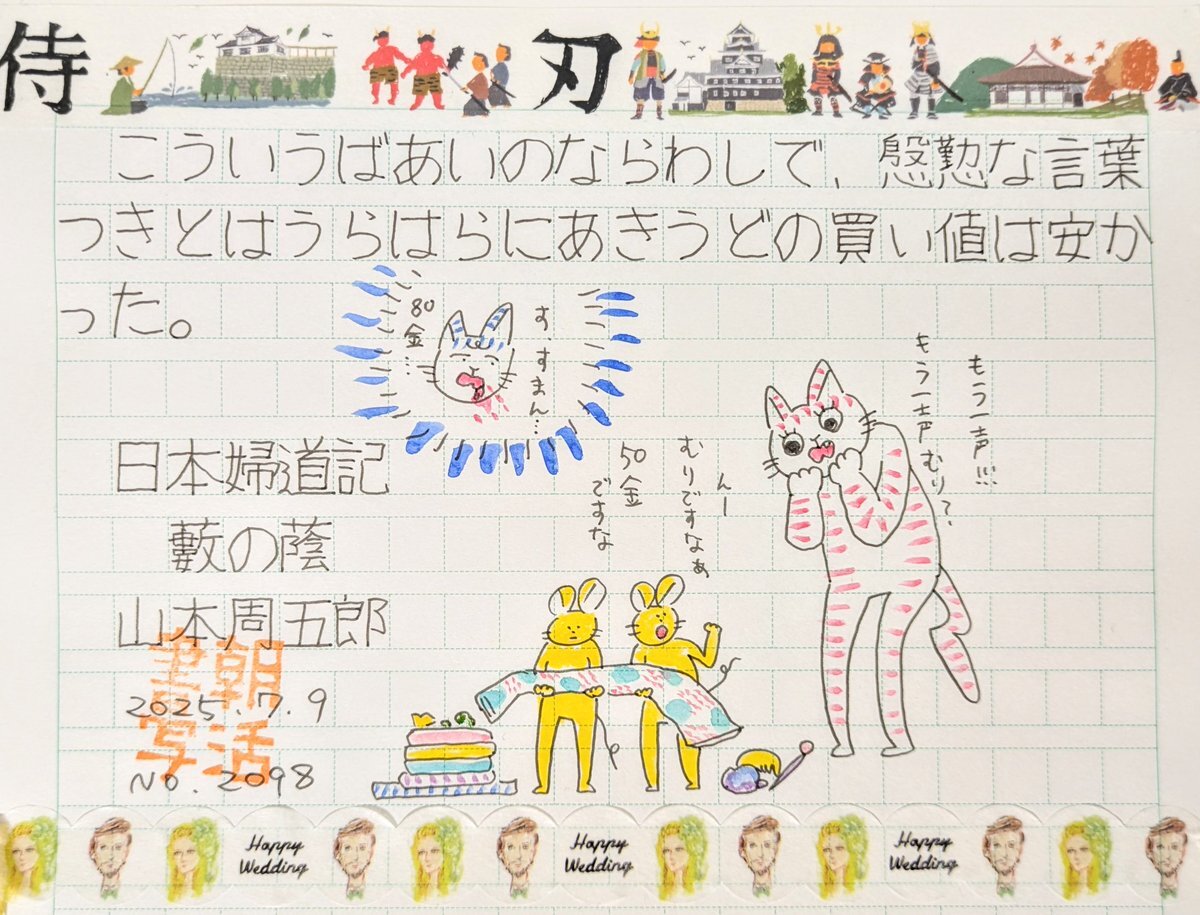 侍 刃
こういうばあいのならわしで、慇懃な言葉
つきとはうらはらにあきうどの買い値は安か
った。
80金…
す、すまん…
もう一声!!!
もう一声 むり?
んー
むりですなぁ
50金
ですな
日本婦道記
藪の蔭
山本周五郎
朝活
書写
2025.7.9
No. 2098
Happy Wedding
Happy Wedding
Happy Wedding